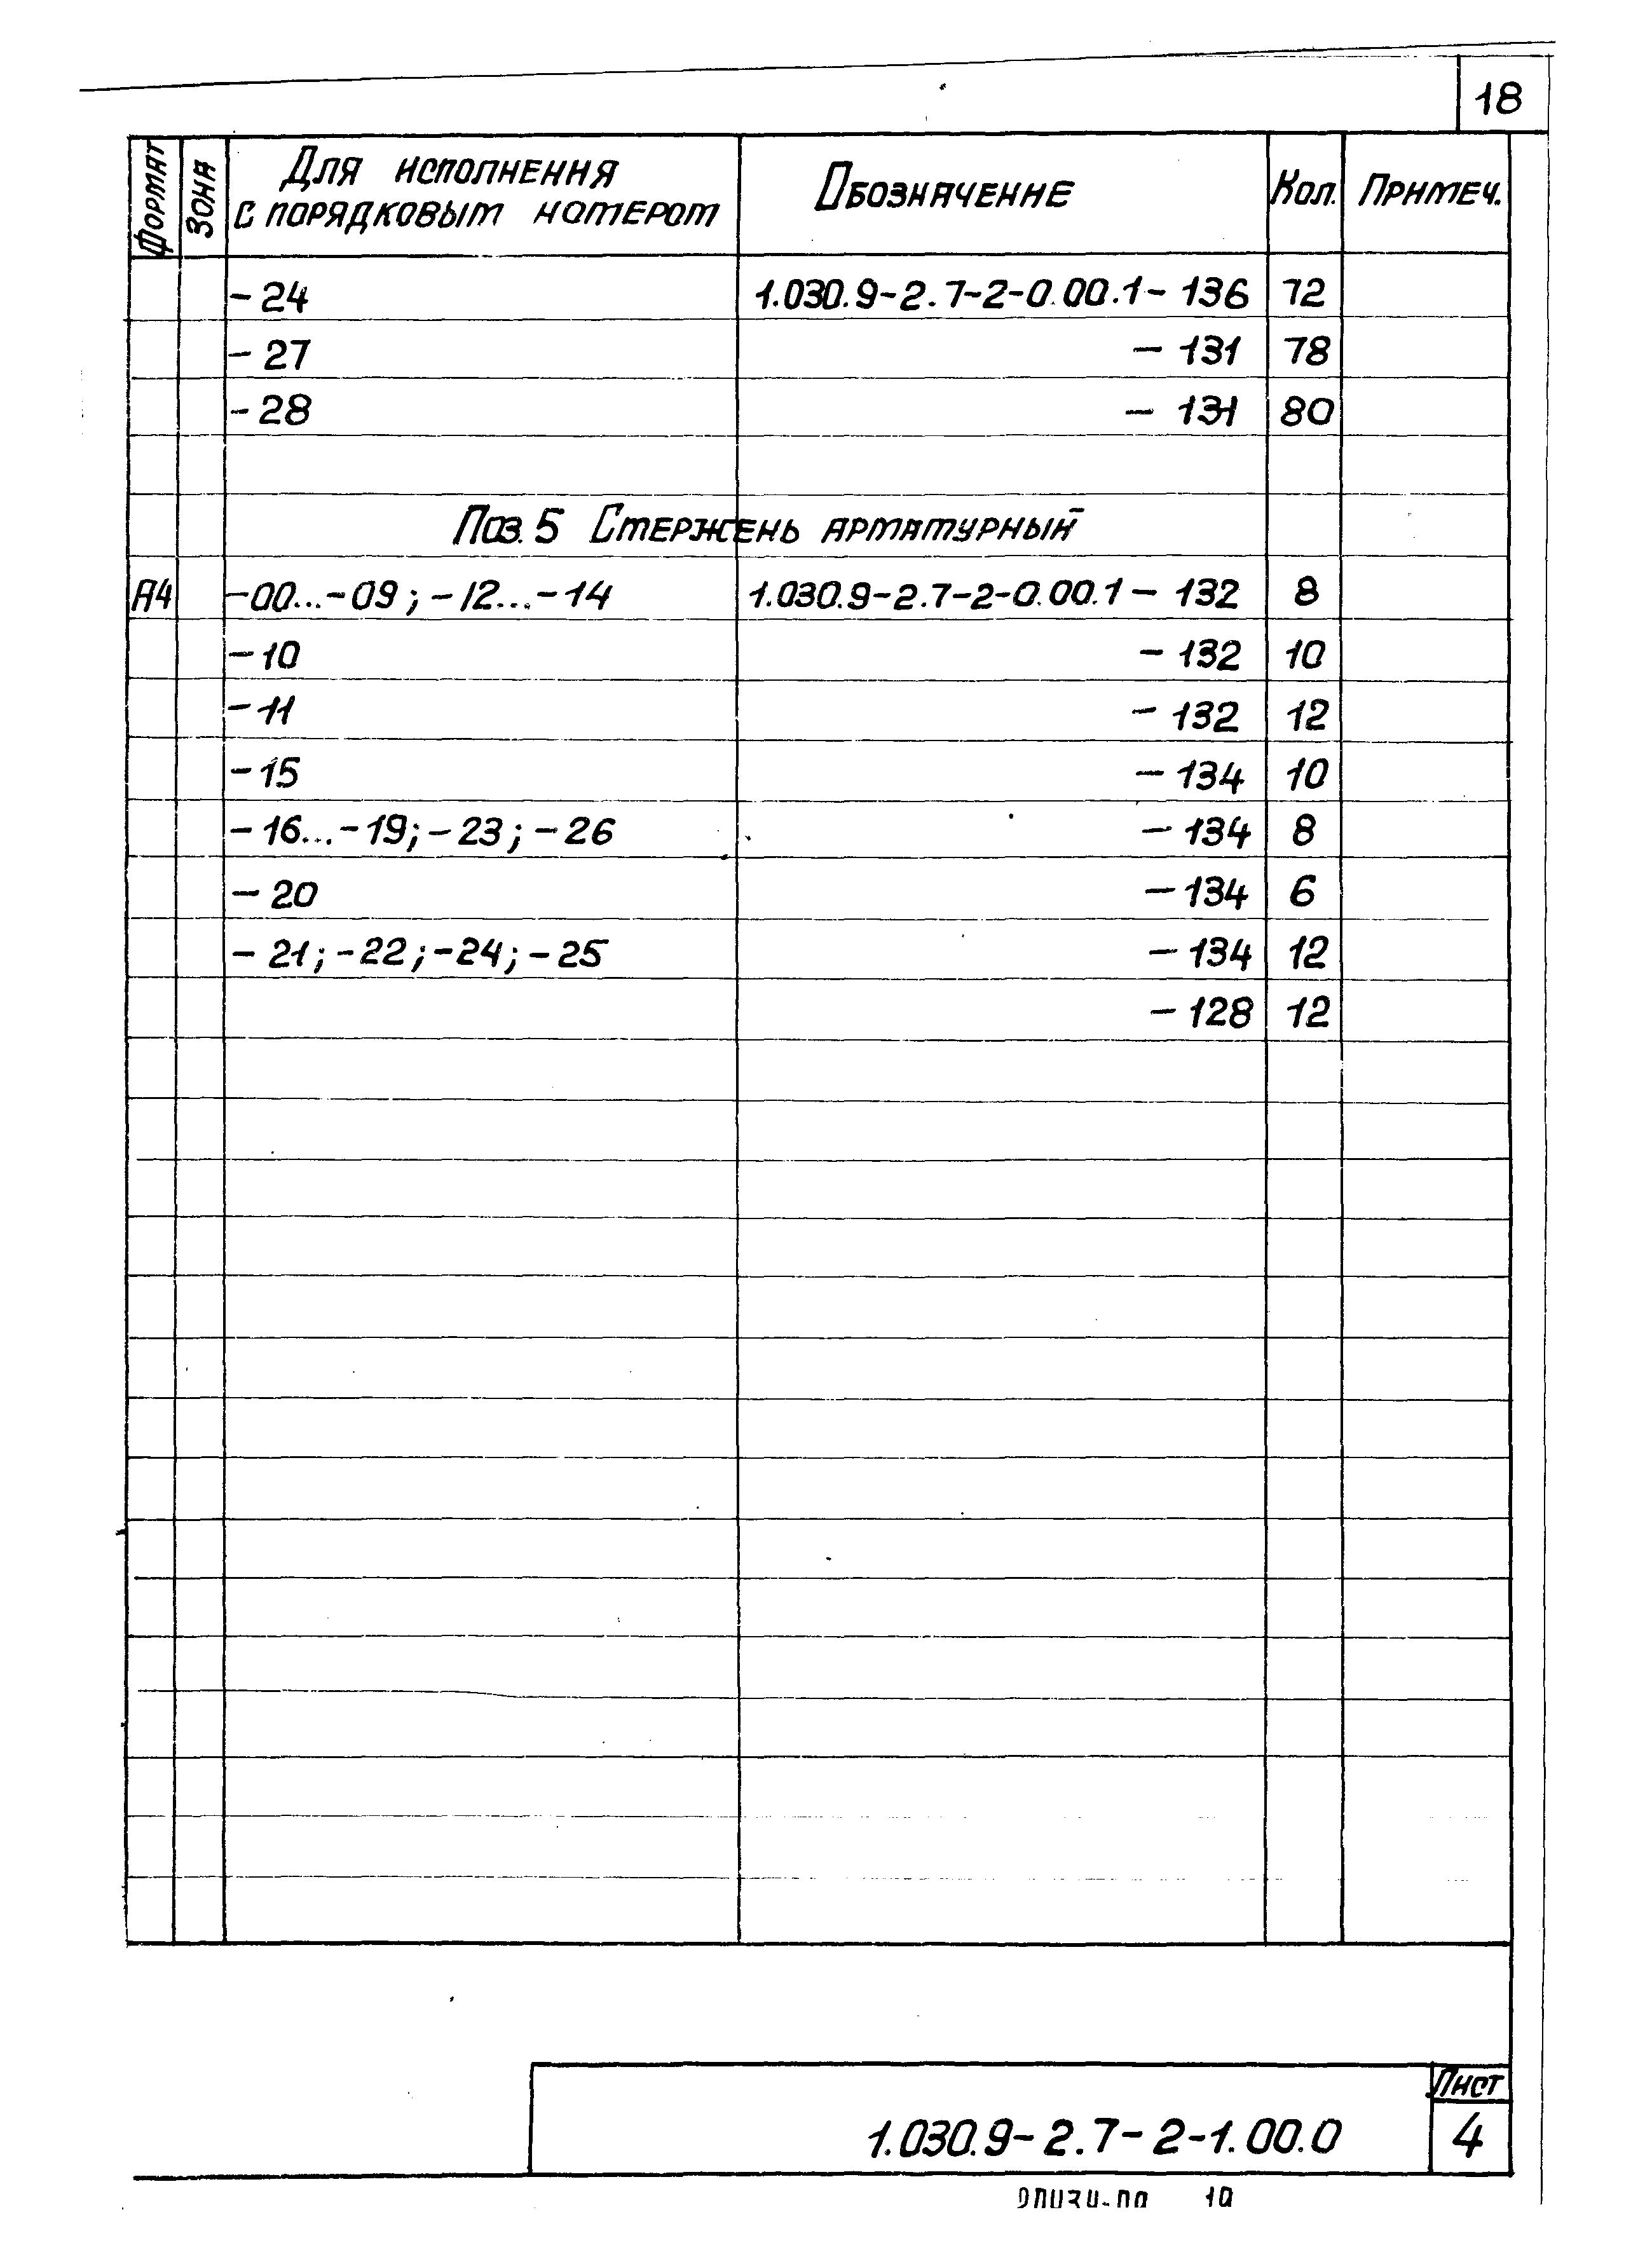 18
Формат Зона Для исполнения с порядковым номером Обозначение Кол. Примеч.
-24 1.030.9-2.7-2-0.00.1-136 72
-27 -131 78
-28 -131 80
Поз. 5 Стержень арматурный
А4 -00...-09; -12...-14 1.030.9-2.7-2-0.00.1-132 8
-10 -132 10
-11 -132 12
-15 -134 10
-16...-19; -23; -26 -134 8
-20 -134 6
-21; -22; -24; -25 -134 12
-128 12
1.030.9-2.7-2-1.00.0
Лист
4